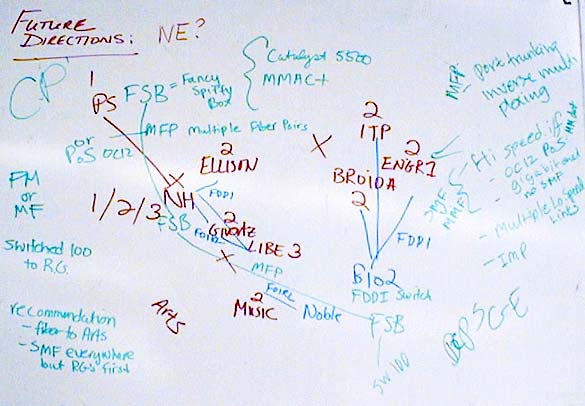 FUTURE
DIRECTIONS:
NE?
CP
1
PS
FSB = Fancy
Spiffy
Box
Catalyst 5500
MMAC+
or
PoS OC12
MFP Multiple Fiber Pairs
2
ELLISON
2
ITP
2
ENGR1
BROIDA
2
MFP
port trunking
inverse multi
plexing
Hi speed if
- OC12 PoS
- gigabit enet
no SMF
- Multiple lo speed
lines
- IMP
SMF
MMF
FM
or
MF
1/2/3
NH
FSB
FDDI
2
Girvetz
LIBE 3
FOIRL
MFP
FDDI
Bio2
FDDI Switch
Switched 100
to RG.
recommendation
- fiber to Arts
- SMF everywhere
but RG's first
Arts
2
MUSIC
FOIRL
Noble
FSB
SW 100